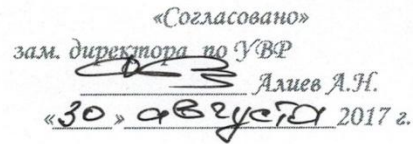 «Согласовано»
зам. директора по УВР
Алиев А.Н.
«30» августа 2017 г.